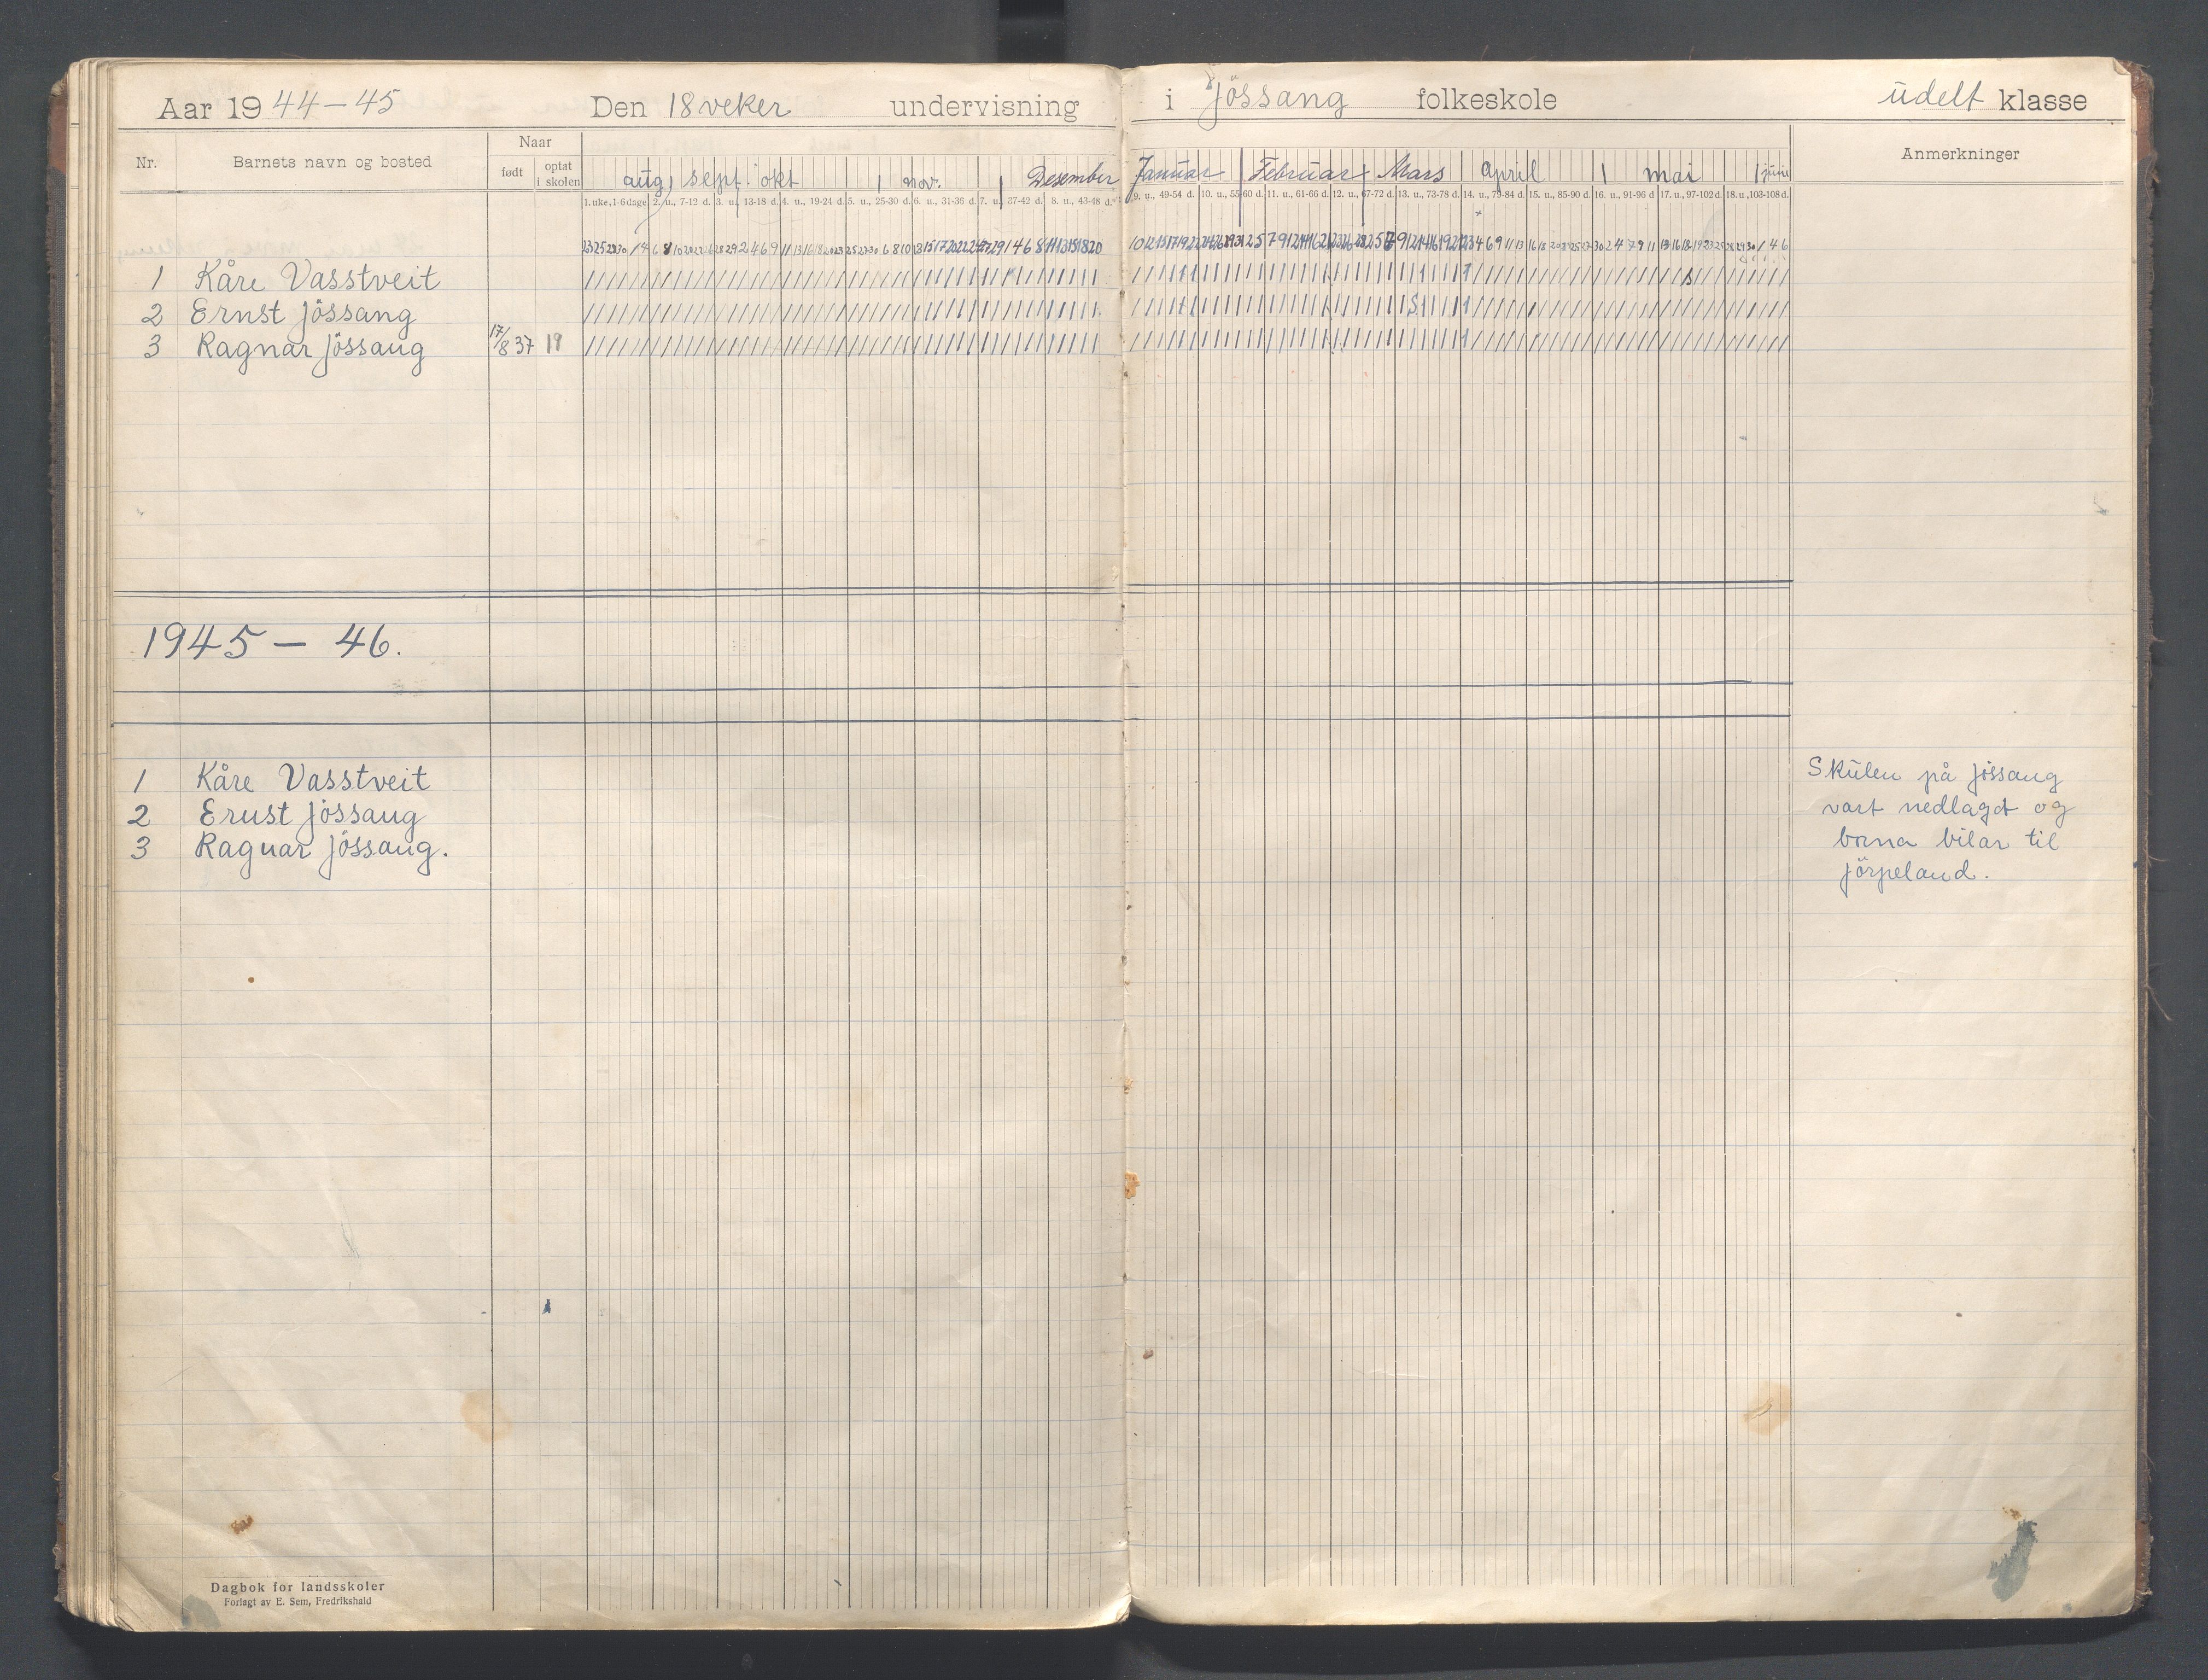 Aar 1944-45 Den 18 veker undervisning i Jössang folkeskole udelt klasse
Nr. Barnets navn og bosted Naar Anmerkninger
født optat i skolen
aug, sept. okt nov. Desember Januar Februar Mars April mai juni
1. uke, 1-6 dage 2. u., 7-12 d. 3. u., 13-18 d. 4. u., 19-24 d. 5. u., 25-30 d. 6. u., 31-36 d. 7. u., 37-42 d. 8. u., 43-48 d. 9. u., 49-54 d. 10. u., 55-60 d. 11. u., 61-66 d. 12. u., 67-72 d. 13. u., 73-78 d. 14. u., 79-84 d. 15. u., 85-90 d. 16. u., 91-96 d. 17. u., 97-102 d. 18. u., 103-108 d.
1 Kåre Vasstveit
2 Ernst Jössang
3 Ragnar Jössang 17/8 37 19
1945 - 46.
1 Kåre Vasstveit
2 Ernst Jössang
3 Ragnar Jössang.
Skulen på Jössang
vart nedlagdt og
borna bilar til
Jörpeland.
Dagbok for landsskoler
Forlagt av E. Sem, Fredrikshald